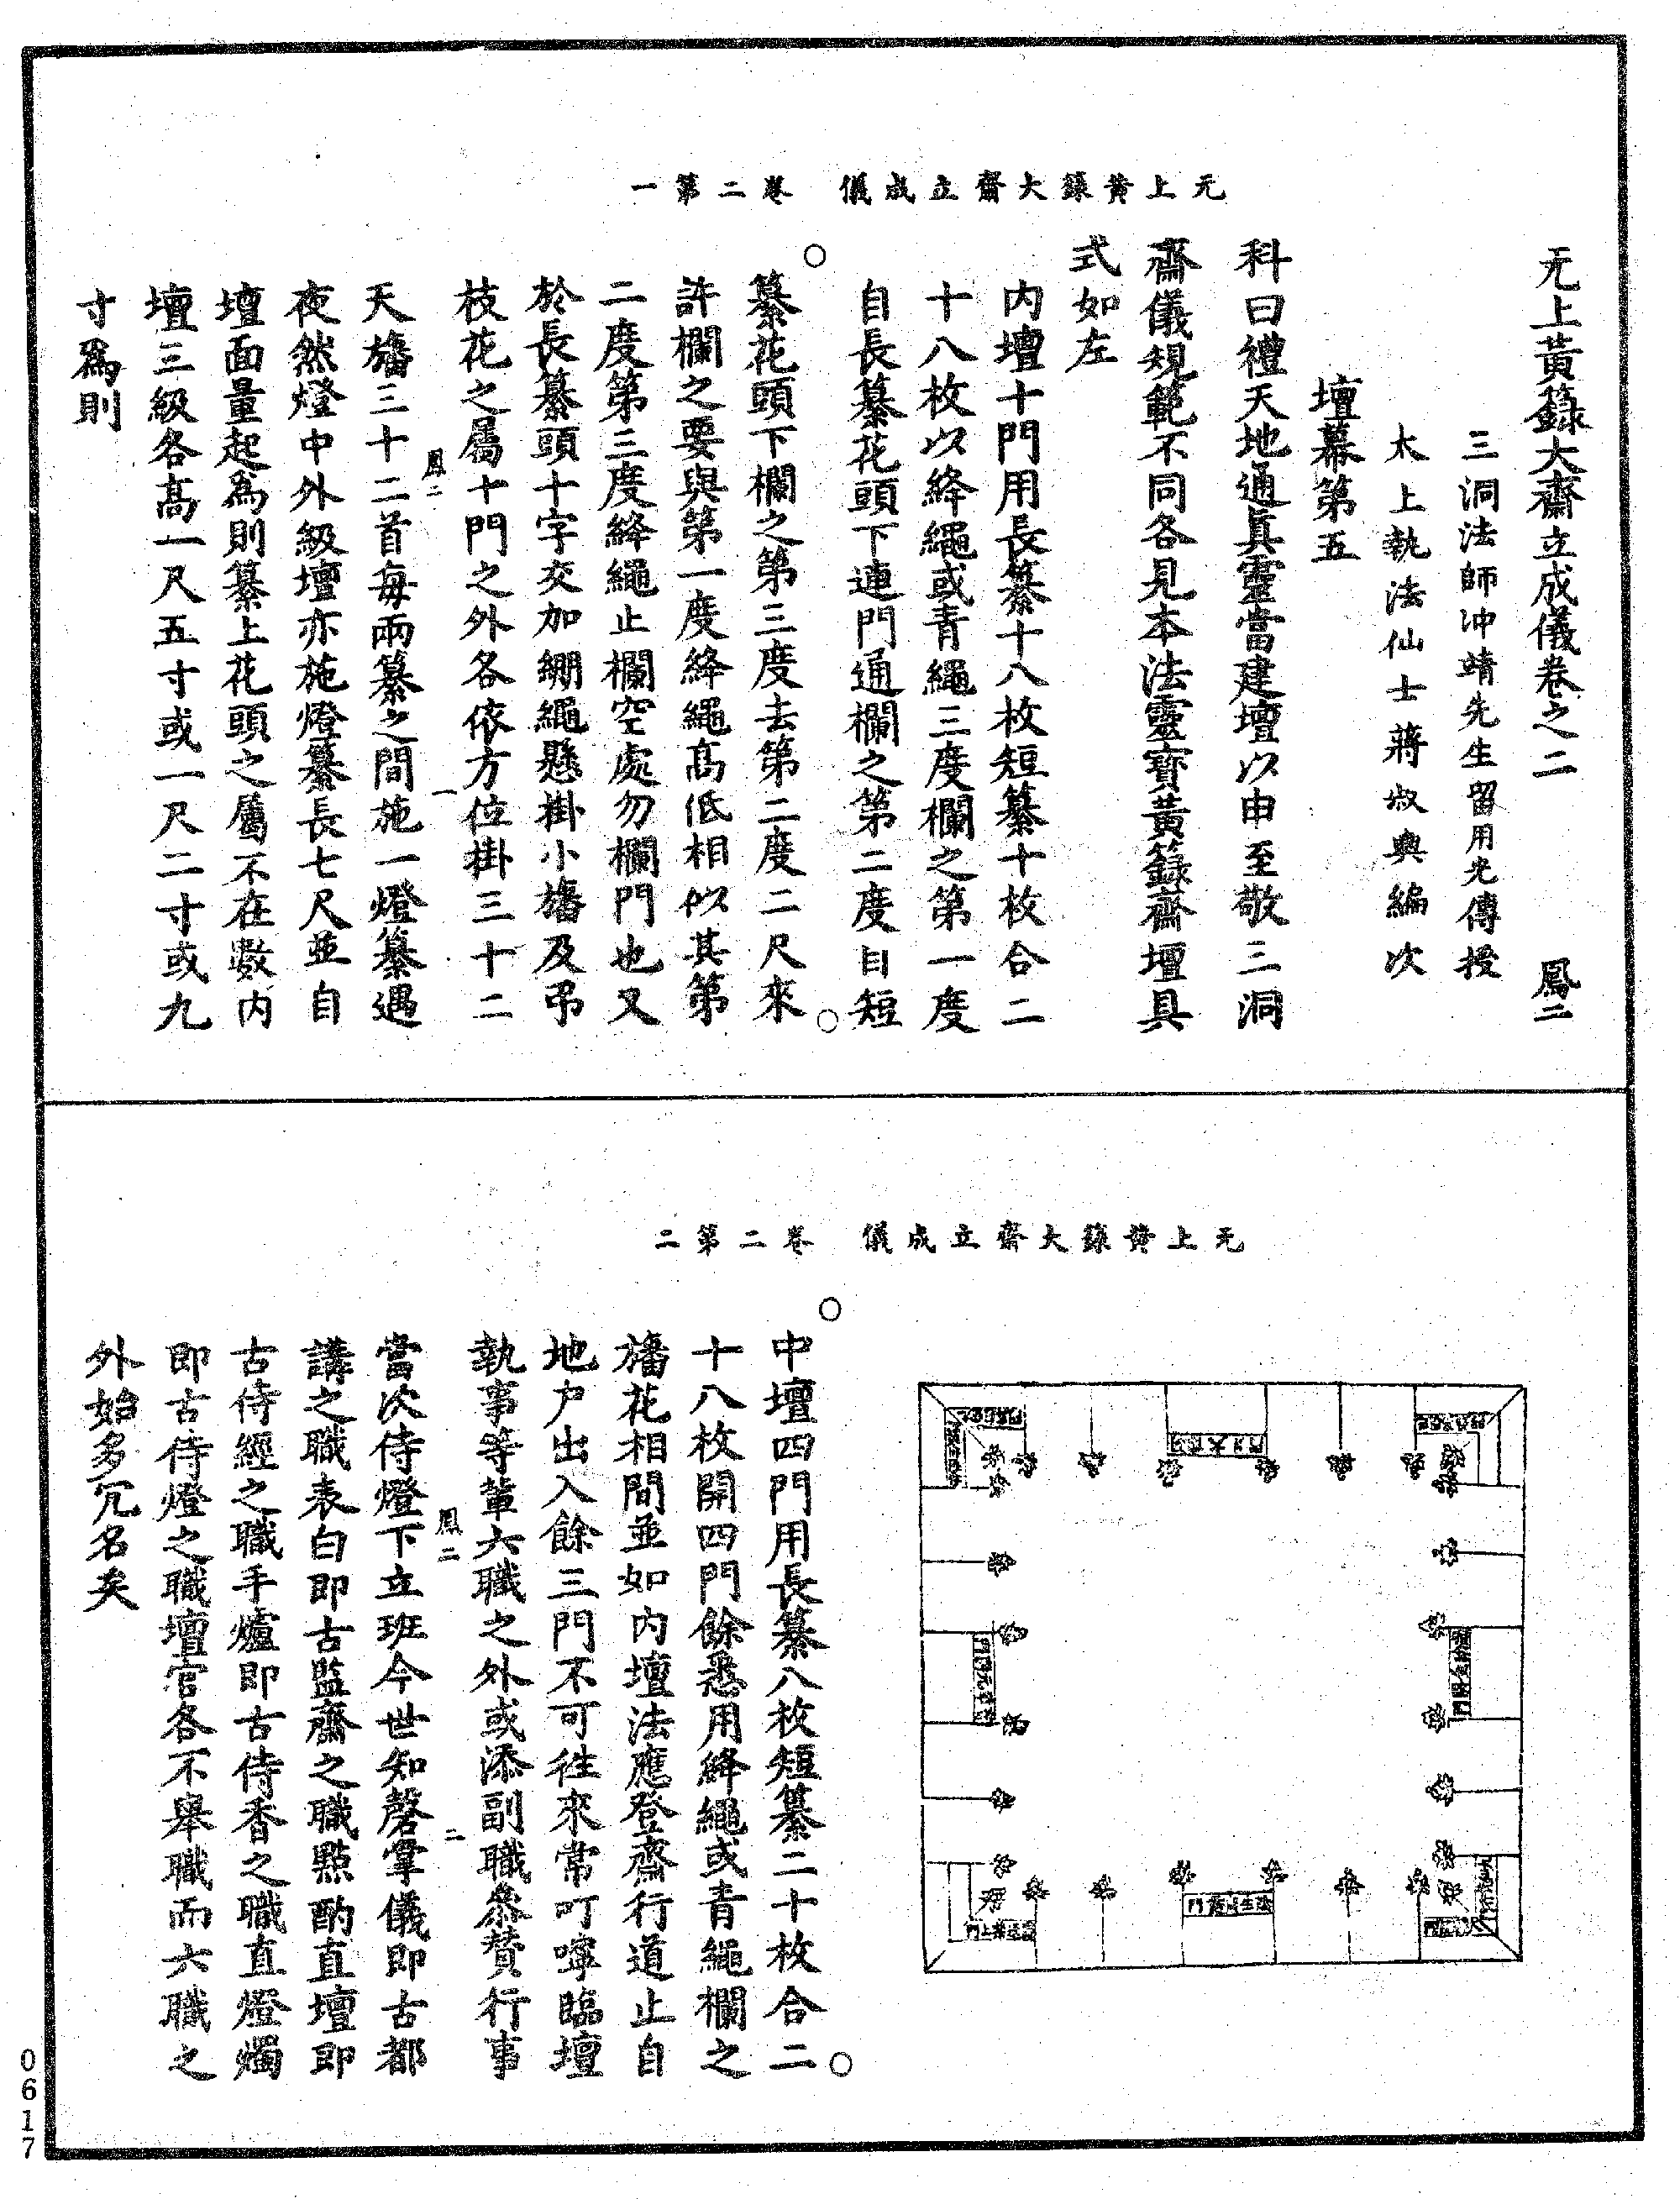 元上黃籙大齋立成儀　卷二第一
无上黃籙大齋立成儀卷之二　鳳二
三洞法師冲靖先生留用光傳授
太上執法仙士蔣叔輿編次
壇幕第五
科曰禮天地通真靈當建壇以申至敬三洞
齋儀規範不同各見本法靈寶黃籙齋壇具
式如左
內壇十門用長纂十八枚短纂十枚合二
十八枚以絳繩或青繩三度欄之第一度
自長纂花頭下連門通欄之第二度自短
纂花頭下欄之第三度去第二度二尺來
許欄之要與第一度絳繩高低相似其第
二度第三度絳繩止欄空處勿欄門也又
於長纂頭十字交加綳繩懸掛小旛及弔
枝花之屬十門之外各依方位掛三十二
鳳二　一
天旛三十二首每兩纂之間施一燈纂遇
夜然燈中外級壇亦施燈纂長七尺並自
壇面量起為則纂上花頭之屬不在數內
壇三級各高一尺五寸或一尺二寸或九
寸為則
元上黃籙大齋立成儀　卷二第二
中壇四門用長纂八枚短纂二十枚合二
十八枚開四門餘悉用絳繩或青繩欄之
旛花相間並如內壇法應登齋行道止自
地戶出入餘三門不可往來常叮嚀臨壇
執事等輩六職之外或添副職參贊行事
鳳二　二
當次侍燈下立班今世知磬掌儀即古都
講之職表白即古監齋之職點酌直壇即
古侍經之職手爐即古侍香之職直燈燭
即古侍燈之職壇官各不舉職而六職之
外始多冗名矣
0617